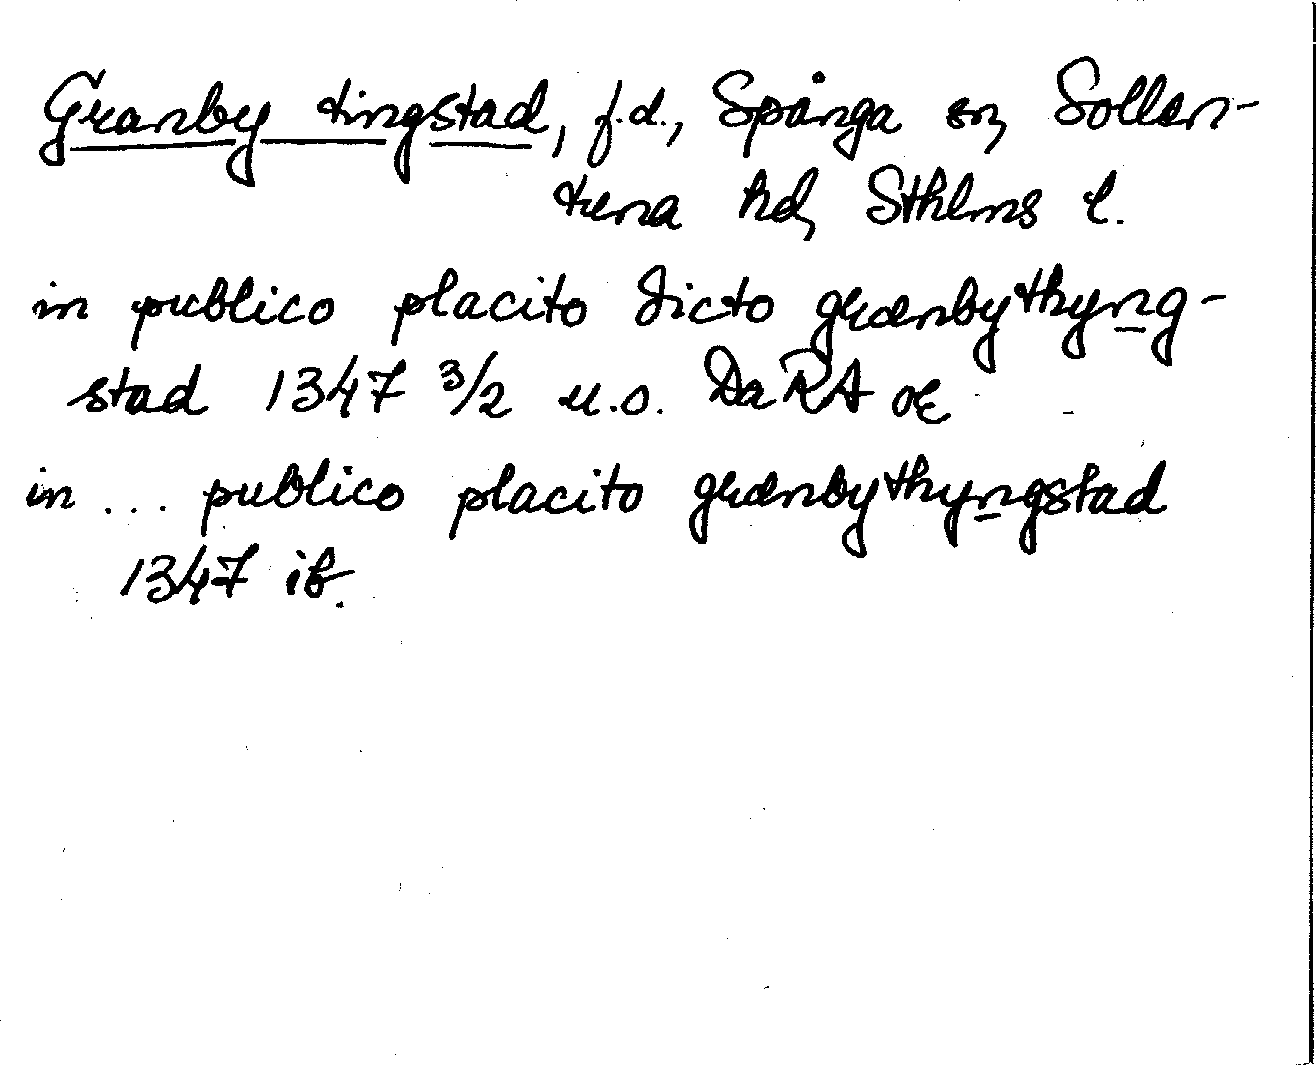 Granby tingstad, f.d., Spånga sn, Sollen-
tuna hd, Sthlms l.
in publico placito dicto grænbythyng-
stad 1347 3/2 u.o. Da RA 0£
in ... publico placito grænbythyngstad
1347 ib.